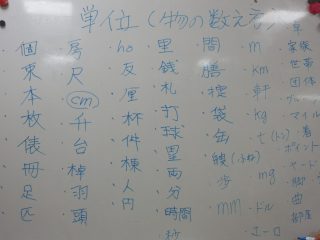 単位(物の数え方)
・個
・束
・本
・枚
・俵
・冊
・足
・匹
・房
・尺
・cm
・升
・台
・棹
・羽
・頭
・ho
・反
・厘
・杯
・件
・棟
・人
・円
・里
・銭
・札
・打
・球
・里
・両
・分
・時間
・秒
・間
・膳
・袋
・缶
・歩
・mm
・m
・km
・軒
・kg
・t(トン)
・mg
・ドル
・ユーロ
・家族
・世帯
・団体
・マイル
・着
・ポイント
・ヤード
・脚
・曲
・部屋